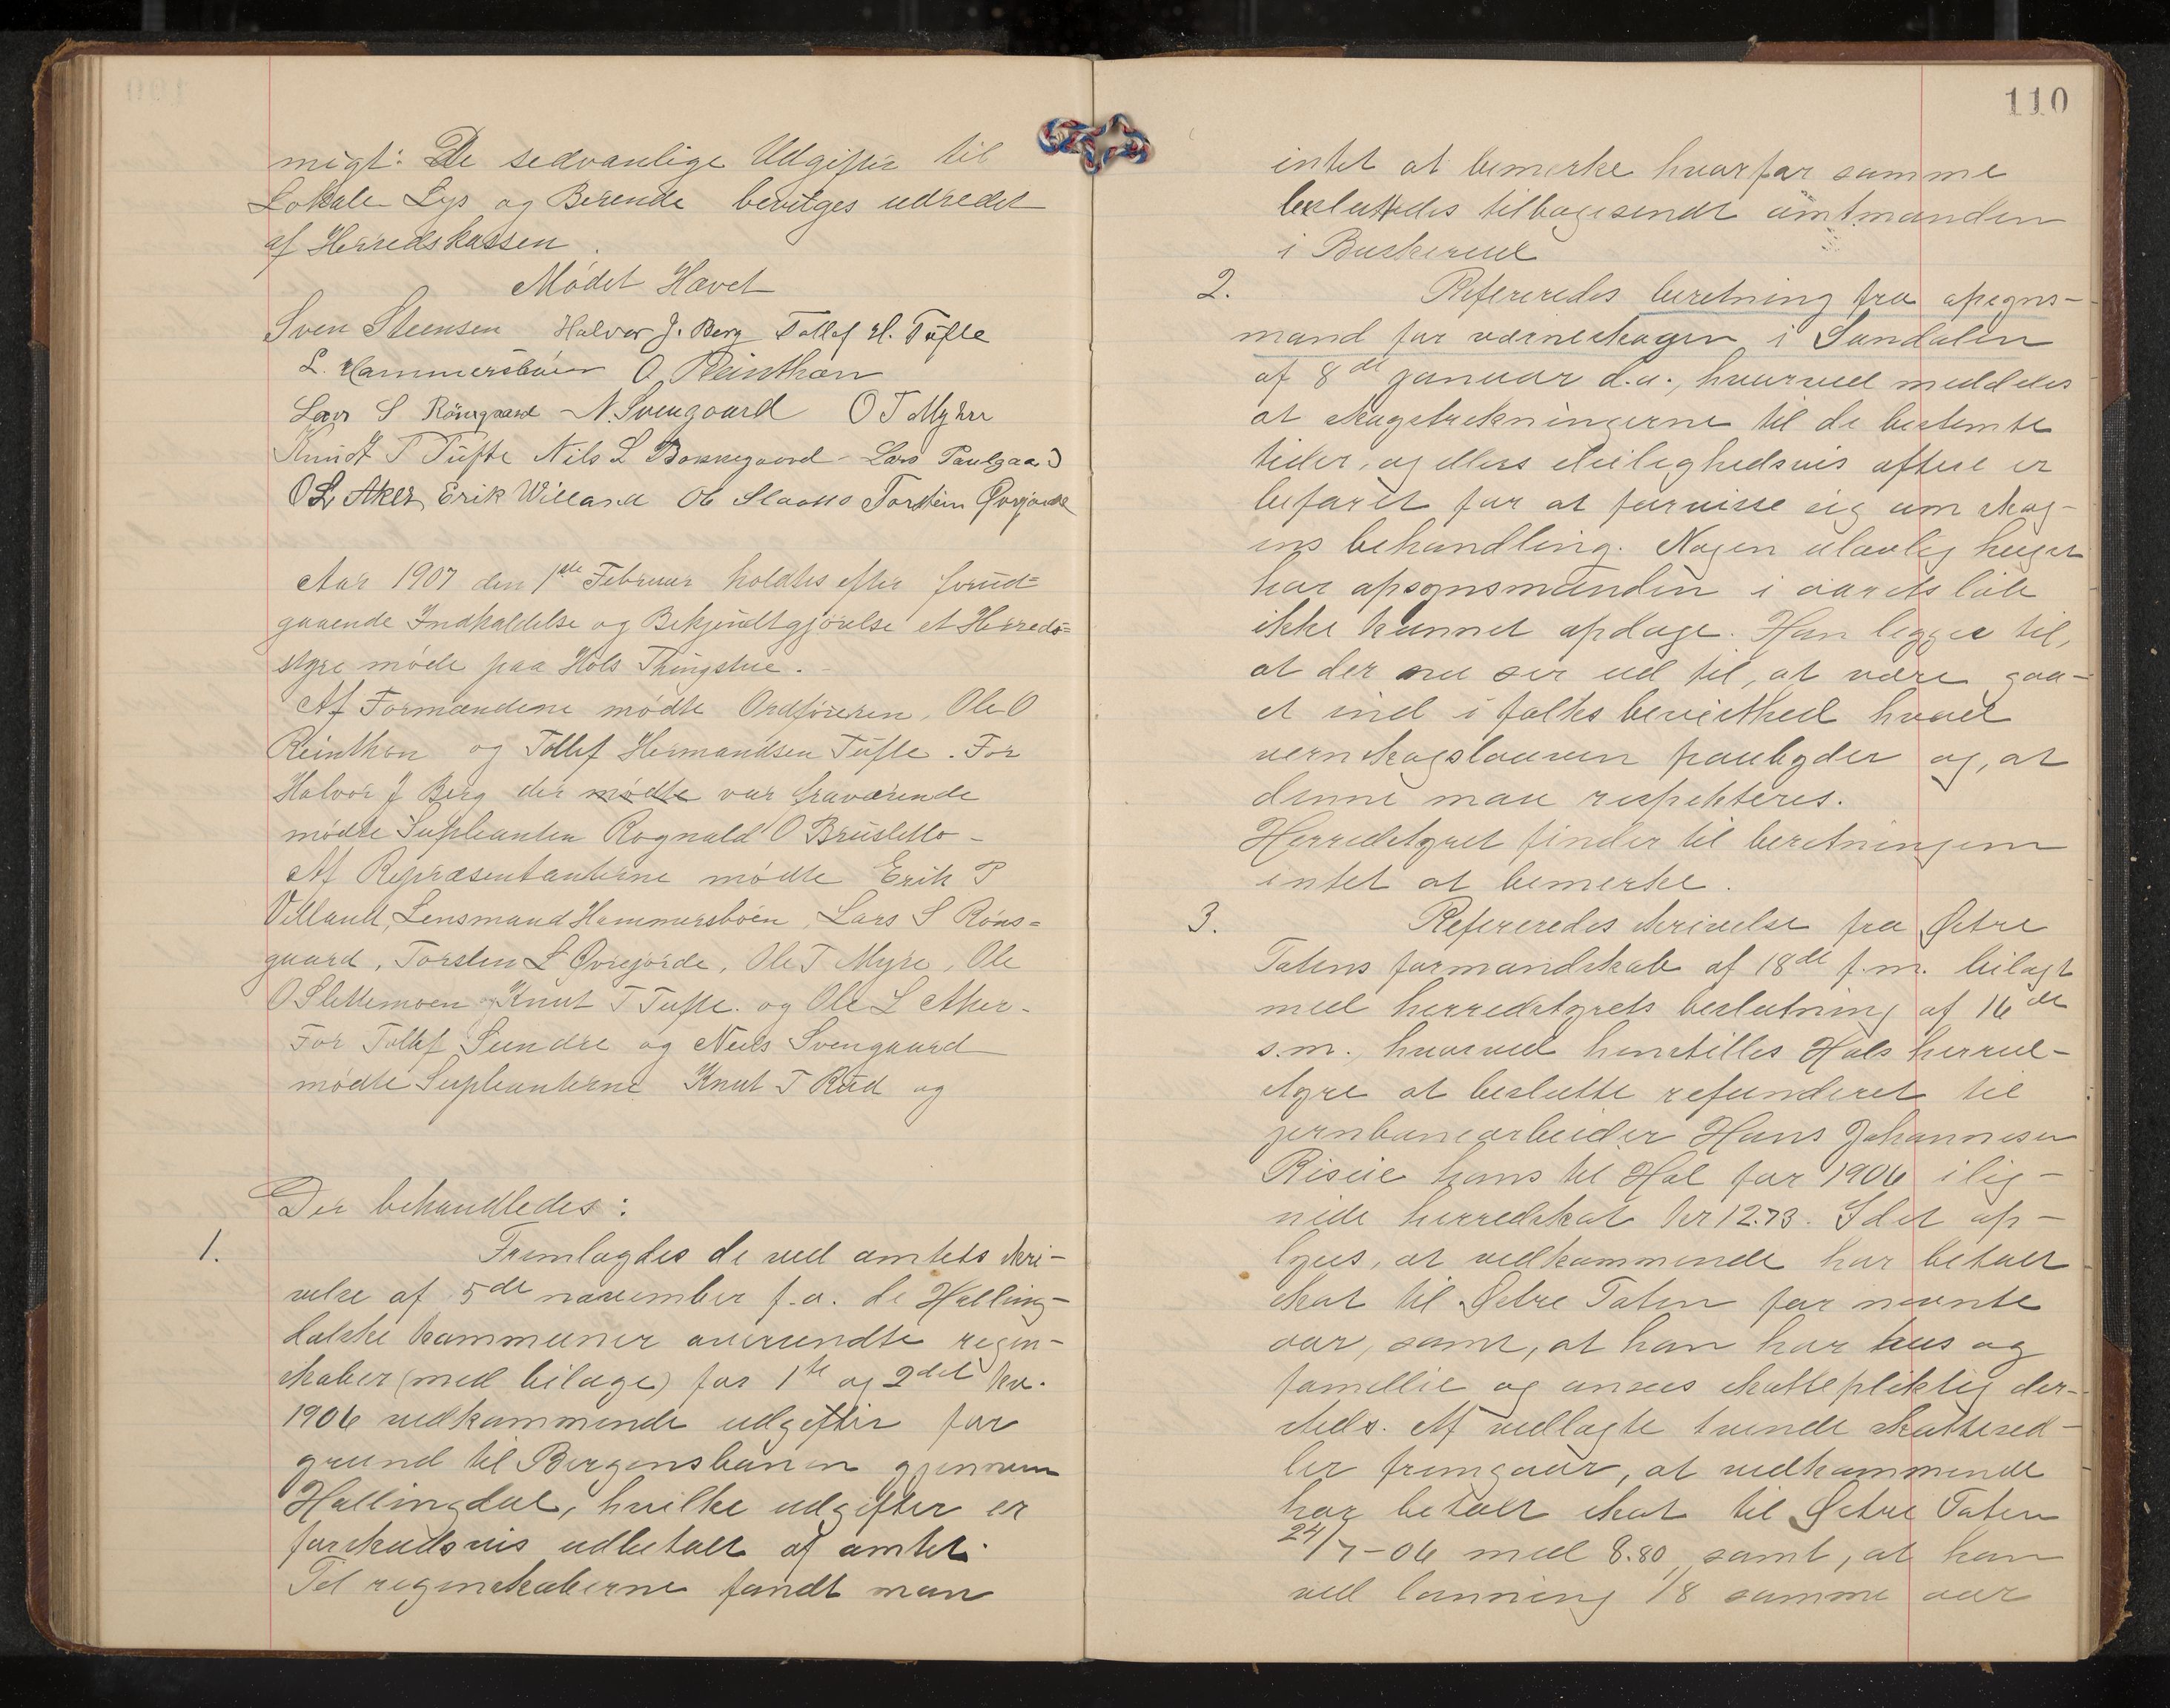 migt: De sedvanlige Udgifter til
Lokale Lys og Børende bevilges udredet
af Herredskassen.
Mødet Hævet
Sven Steensen Halvor J. Berg Tollef H. Tufte
L. Hammersbøen O Reinthon
Lars S Rönsgaard N. Svengaard O T Myhre
Knudt T Tufte Nils L Bakkegaard Lars Paulgaard
O L Aker Erik Willand Ole Slaatto Torstein Øvrejorde
Aar 1907 den 1ste Februar holdtes efter forud=
gaaende Indkaldelse og Bekjendtgjørelse et Herreds=
styre møde paa Hols Thingstue.
Af Formændene mødte Ordføreren, Ole O
Reinthon og Tollef Hermandsen Tufte. For
Halvor J Berg der mødte var fraværende
mødte Supleanten Rognald O Brusletto –
Af Repræsentanterne mødte Erik P
Villand, Lensmand Hammersbøen, Lars S Røns=
gaard, Torsten L Øvrejorde, Ole T Myre, Ole
O Slettemoen og Knut T Tufte. og Ole L Aker.
For Tollef Sundre og Neils Svengaard
mødte Supleanterne Knut T Rud og
Der behandledes:
1. Fremlagdes de ved amtets skri-
velse af 5de november f.a. de Halling-
dalske kommuner oversendte regn-
skaber (med bilage) for 1te og 2det kv.
1906 vedkommende udgifter for
grund til Bergensbanen gjennem
Hallingdal, hvilke udgifter er
forskudsvis udbetalt af amtet.
Til regnskaberne fandt man
110
intet at bemerke hvorfor samme
besluttedes tilbagesendt amtmanden
i Buskerud
2. Refereredes beretning fra opsyns-
mand for værneskogen i Sundalen
af 8de januar d.a., hvorved meddeles
at skogstrekningerne til de bestemte
tider, og ellers leilighedsvis oftere er
befaret for at forvisse sig om skog-
ens behandling. Nogen ulovlig hugst
har opsynsmanden i aarets løb
ikke kunnet opdage. Han legger til,
at der nu ser ud til, at være gaa-
et ind i folks bevisthed hvad
vernskogsloven paabyder og, at
denne maa respekteres.
Herredstyret finder til beretningen
intet at bemerke.
3. Refereredes skrivelse fra Østre
Totens formandskab af 18de f.m. bilagt
med herredstyrets beslutning af 16de
s.m., hvorved henstilles Hols herred-
styre at beslutte refunderet til
jernbanearbeider Hans Johannesen
Riseie hans til Hol for 1906 ilig-
nede herredskat kr 12.73. Idet op-
lyses, at vedkommende har betalt
skat til Østre Toten for nævnte
aar, samt, at han har hus og
famillie og ansees skattepliktig der-
steds. Af vedlagte tvende skattesed-
ler fremgaar, at vedkommende
har betalt skat til Østre Toten
24/7-06 med 8.80, samt, at han
ved lønning 1/8 samme aar